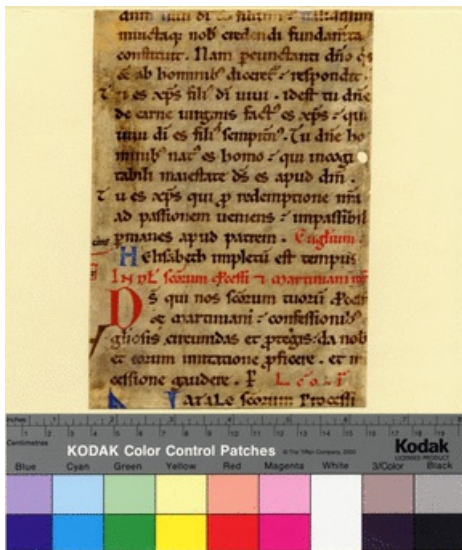 mustaq; nob credendi fundamta
constituit. Nam percunctanti dño qs
ee ab hominib; diceret: respondit.
Tu es xps fili di uiui. idest tu dñe
de carne uirginis fact es xps: qui
uiui di es fili sempitn. Tu dñe ho
minib; nat es homo: qui incogi
tabili maiestate ds es apud dm.
Tu es xps qui p redemptione nra
ad passionem ueniens: impassibil
pmanes apud patrem. Euglium.
Helisabeth impletu est tempus
IN NL scorum pcessi 7 martiniani m
Ds qui nos scorum tuoru pcess
et martiniani: confessionib;
gliosis circumdas et ptegis: da nob
et eorum imitatione pficere. et in
cessione gaudere. P
Natale scorum Processi
Inches
Centimetres
KODAK Color Control Patches
© The Tiffen Company, 2000
Kodak
LICENSED PRODUCT
Blue Cyan Green Yellow Red Magenta White 3/Color Black